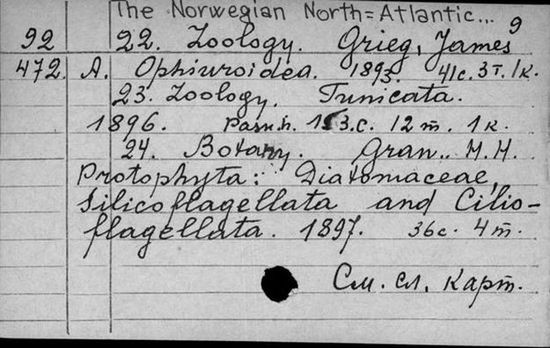 The Norwegian North=Atlantic... 9
92 22. Zoology. Grieg, James
472. A. Ophiuroidea. 1893. 41с. 3т. 1к.
23. Zoology. Tunicata.
1896. 3.с. 12 т. 1к.
24. Botany. Gran.. H.H.
Protophyta: Diatomaceae,
Silicoflagellata and Cilio-
flagellata. 1897. 36с. 4т.
См. сл. карт.